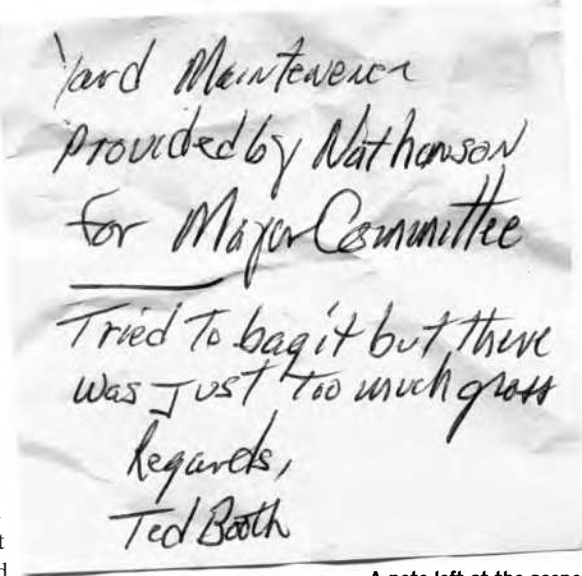 Yard Maintenence
Provided by Nathanson
for Mayor Committee
Tried To bag it but there
was Just Too much grass
Regards,
Ted Booth
A note left at the scene